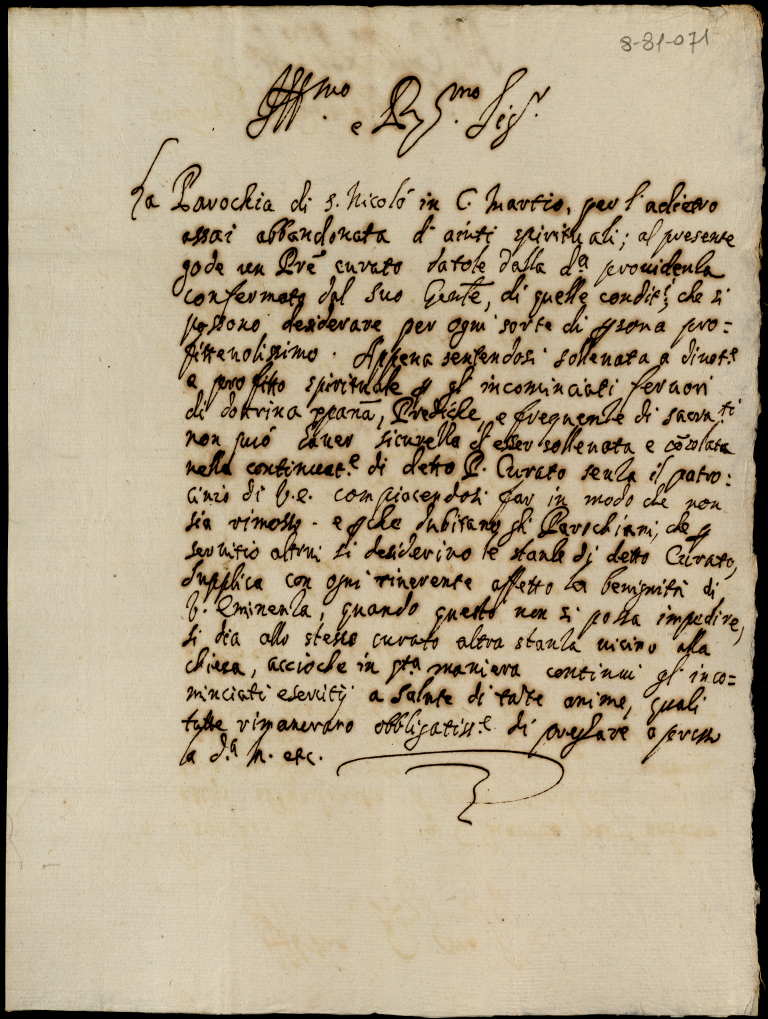 8-81-071
Ill.mo e R.mo Sig.r
La Parochia di S. Nicolò in C. Martio, per l'adietro
assai abbandonata d'aiuti spirituali; al presente
gode un Prē curato datole dalla d.a providenza
confermato dal suo Gen̄le, di quelle condit.i che si
possono desiderare per ogni sorte di ꝑsona pro=
fittevolissimo. Appena sentendosi sollevata a divot.e
e profitto spirituale ꝑ gl'incominciati fervori
di dottrina xp̄ana, Prediche, e frequente di sacra.ti
non può haver sicurezza d'esser sollevata e cōsolata
nella continuat.e di detto P. Curato senza il patro:
cinio di V.E. compiacendosi far in modo che non
sia rimosso. e ꝑche dubitano gli Parochiani, che ꝑ
servitio altrui si desiderino le stanze di detto Curato,
supplica con ogni riverente affetto la benignità di
V. Eminenza, quando questo non si possa impedire,
si dia allo stesso curato altra stanza vicino alla
chiesa, accioche in q.ta maniera continui gl'inco=
minciati esercitij a salute di tante anime, quali
tutte rimanerano obbligatiss.e di pregare appresso
la d.a M. etc.